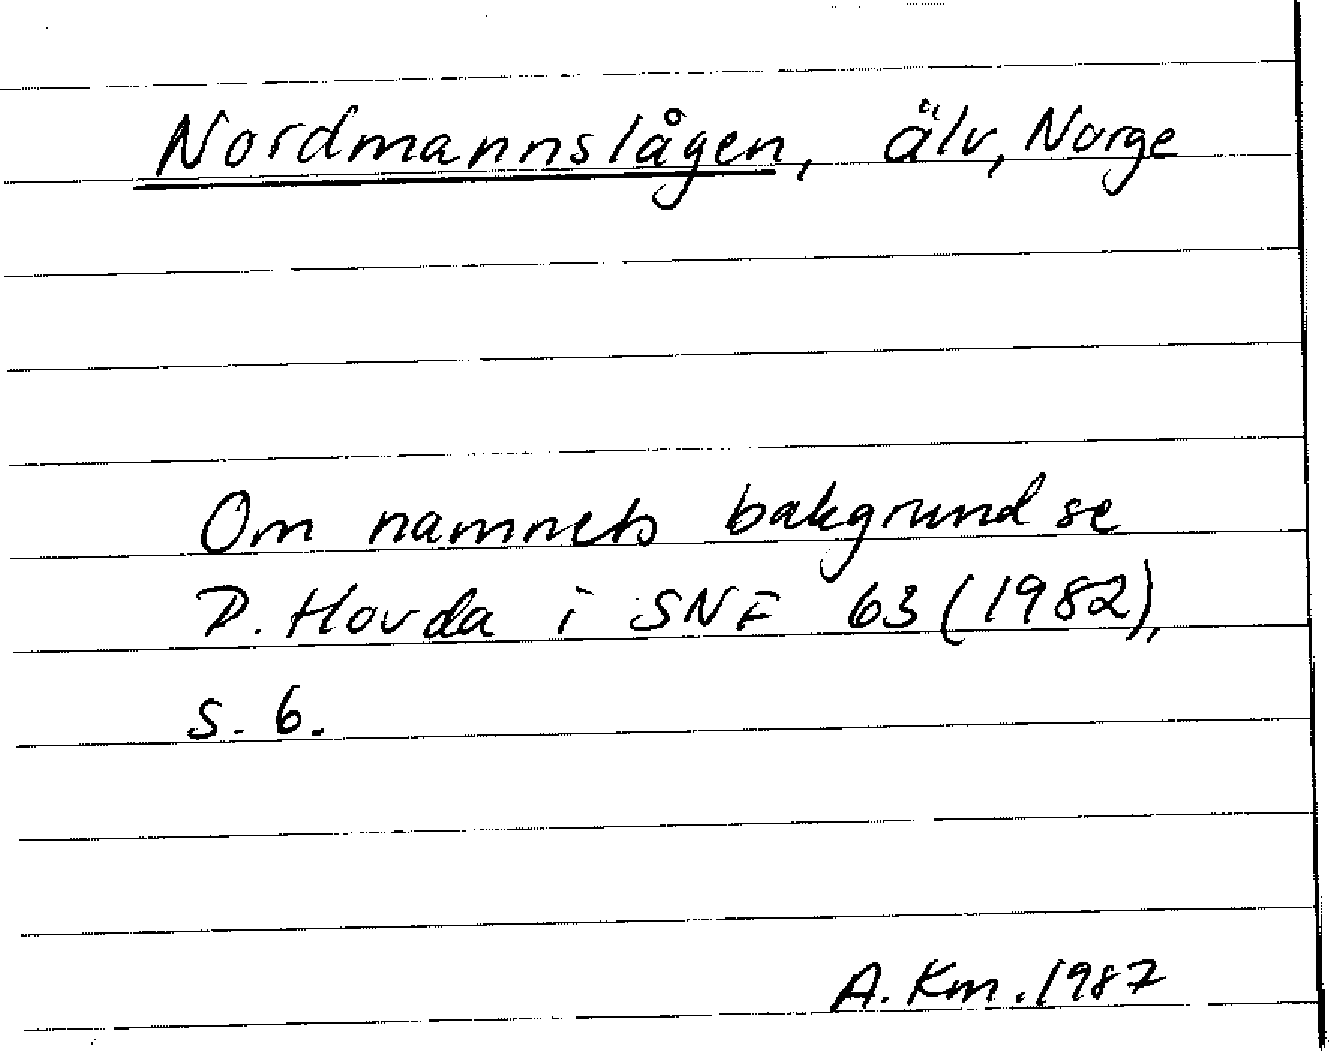 Nordmannslågen, älv, Norge
Om namnets bakgrund se
P. Hovda i SNF 63 (1982),
s. 6.
A. Km. 1987